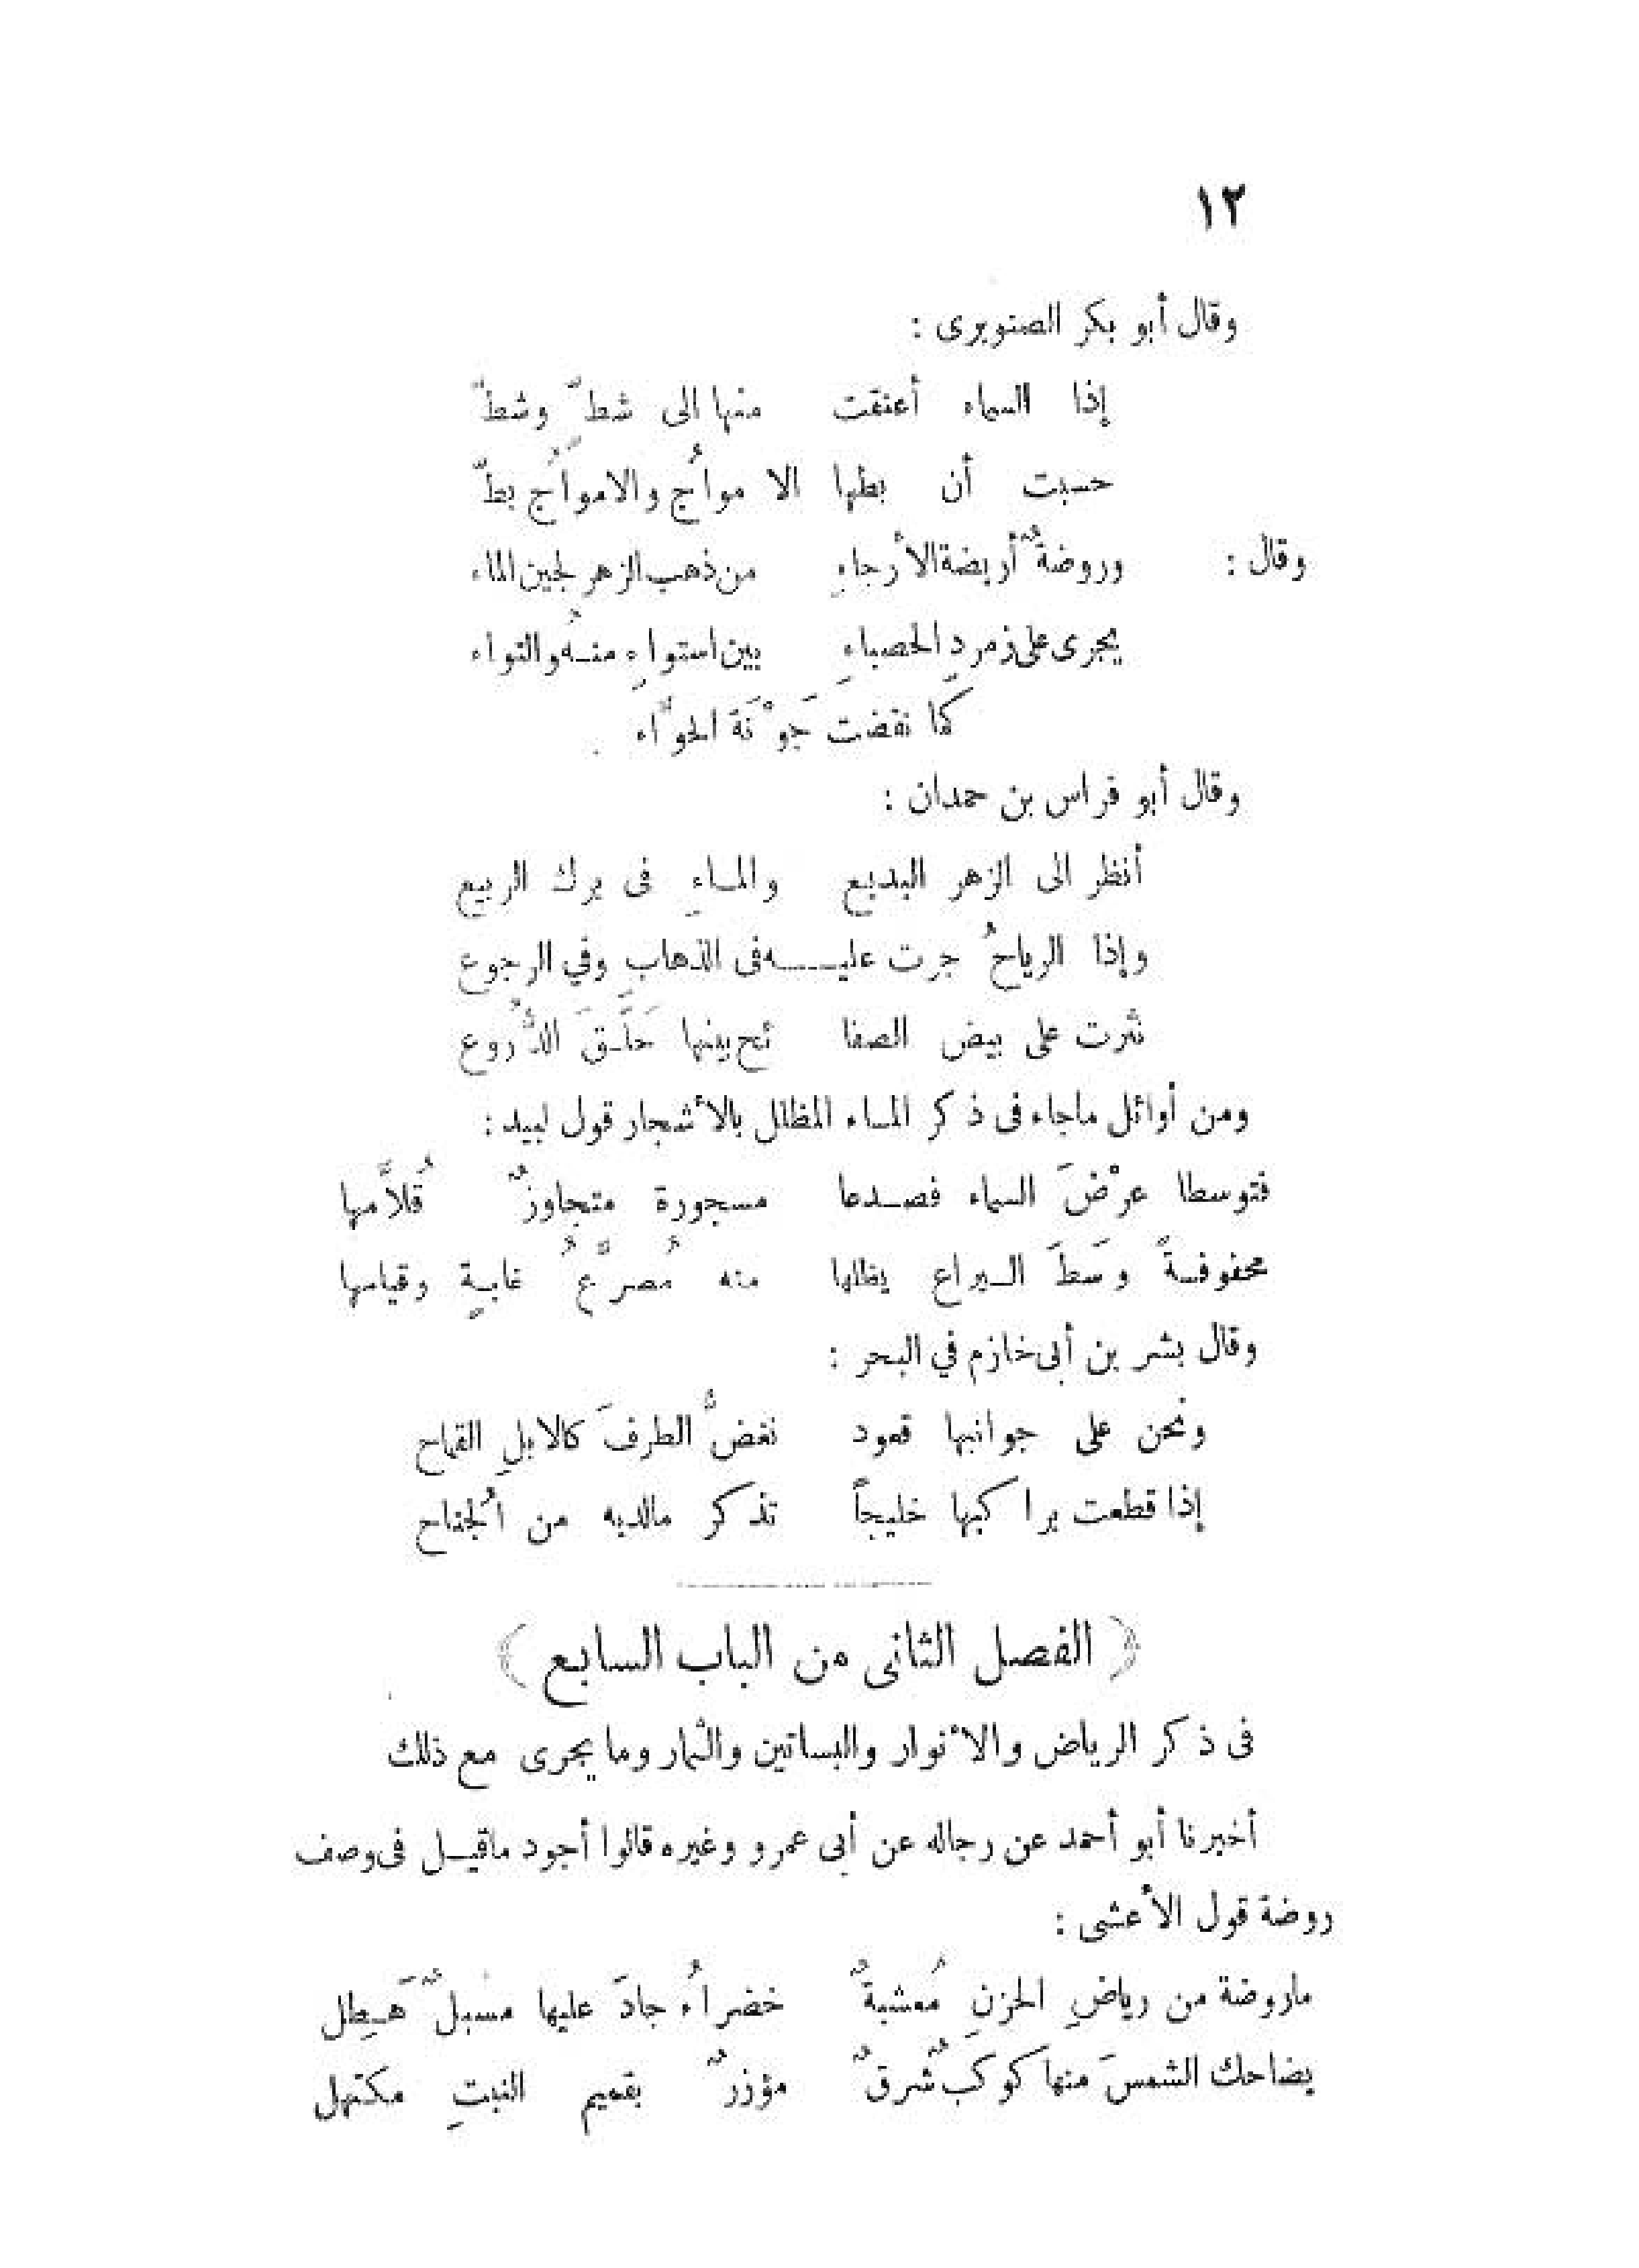 ١٢
وقال أبو بكر الصنوبرى :
إذا السماء أعنقت منها الى شطّ وشطّ
حسبت أن بطها الا مواُج والامواُج بطّ
وقال : وروضةٌ أريضة الأرجاءِ من ذهب الزهر لجين الماء
يجرى على زمردِ الحصباءِ بين استواءِ منـهُ والتواء
كما نفضت جَوْنَة الحوَّاء
وقال أبو فراس بن حمدان :
أنظر الى الزهر البديع والمـاءِ فى برك الربيع
وإذا الرياحُ جرت عليـــه فى الذهابِ وفي الرجوع
نثرت على بيض الصفا ئح بينها حَلَـقَ الدُّروع
ومن أوائل ماجاء فى ذكر المـاء المظلل بالأشجار قول لبيد :
فتوسطا عرْضَ السماء فصـدعا مسجورة متجاوزٌ قُلاَّمها
محفوفـةً وسَطَ الـيراع يظلها منه مُصرَّعُ غابـةٍ وقيامها
وقال بشر بن أبى خازم في البحر :
ونحن على جوانبها قعود نغضُّ الطرفَ كالابلِ القماح
إذا قطعت براكبها خليجاً تذكر مالديه من اُلجناح
﴿ الفصل الثانى من الباب السابع ﴾
فى ذكر الرياض والأنوار والبساتين والثمار وما يجرى مع ذلك
أخبرنا أبو أحمد عن رجاله عن أبى عمرو وغيره قالوا أجود ماقيـل فى وصف
روضة قول الأعشى :
ماروضة من رياضِ الحزنِ مُعشبةٌ خضراُء جادَ عليها مسبلٌ هَـطِل
يضاحك الشمسَ منها كوكبٌ شرقٌ مؤزرٌ بعميم النبتِ مكتهل